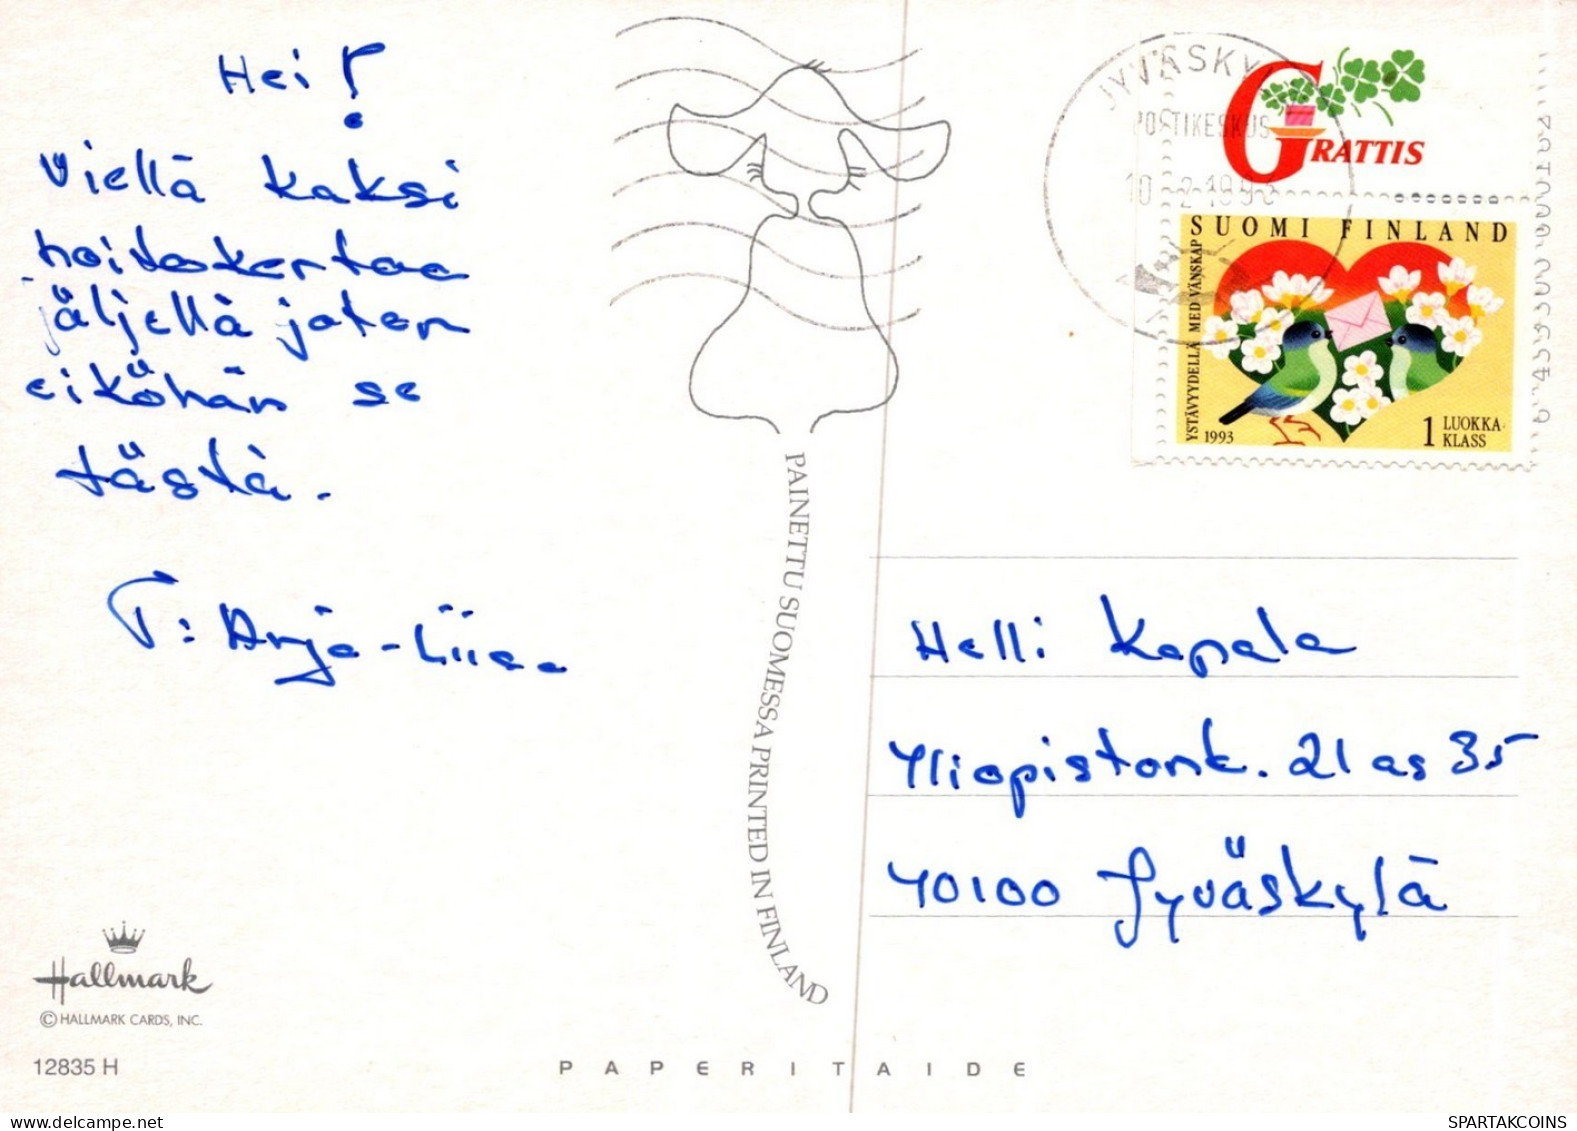 Hei!
Viellä kaksi
hoitokertaa
jäljellä joten
eiköhän se
tästä.
T: Arja-Liisa
JYVÄSKY
POSTIKESKUS
GRATTIS
SUOMI FINLAND
YSTÄVYYDELLÄ MED VÄNSKAP
1993
1 LUOKKA-
KLASS
PAINETTU SUOMESSA PRINTED IN FINLAND
Helli Kapala
Yliopistonk. 21 as 35
40100 Jyväskylä
Hallmark
© HALLMARK CARDS, INC.
12835 H
PAPERITAIDE
SPARTAKCOINS